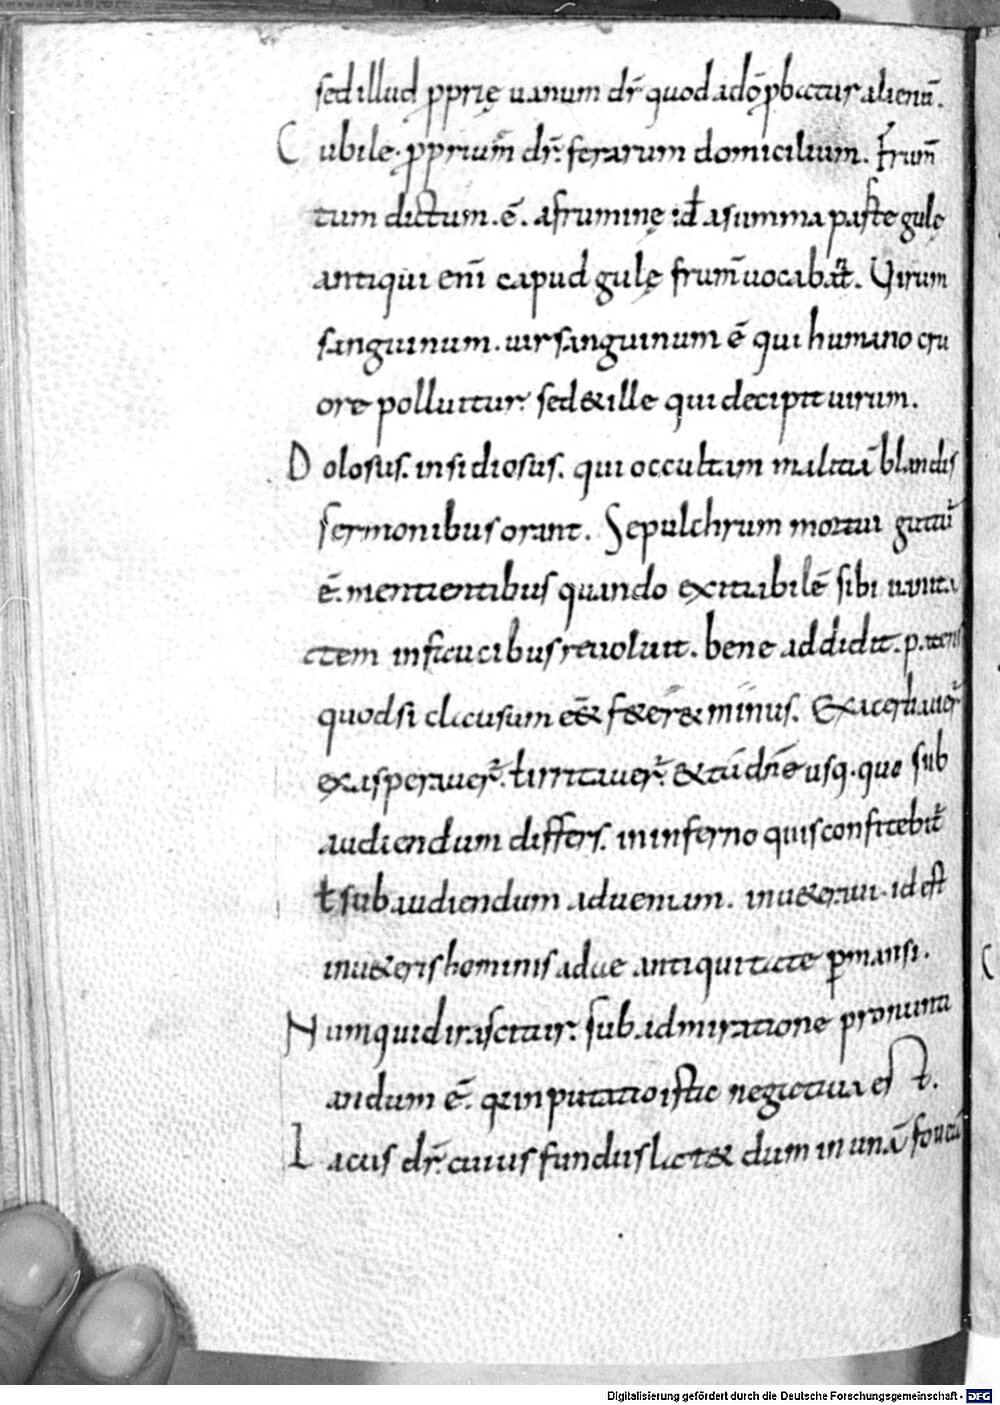 sed illud ꝓprię uanum dr̄ quod a dō ꝓbatur alienū.
Cubile. ꝓprium dr̄ ferarum domicilium. Frum̄
tum dictum. ē. a frumine id ē a summa parte gulę
antiqui enī capud gulę frum̄ uocabāt. Uirum
sanguinum. uir sanguinum ē qui humano cru
ore polluitur. sed & ille qui decipit uirum.
Dolosus. insidiosus. qui occultam malitiā blandis
sermonibus orant. Sepulchrum mortui guttur
ē. mentientibus quando exitiabilē sibi uanita
tem in faucibus reuoluit. bene addidit. patens
quod si clausum eēt feter& minus. Exacerbauer̄
exasperauer̄. ł irritauer̄. & tū dn̄e usq. quo sub
audiendum differs. in inferno quis confitebit̄
ł subaudiendum ad ueniam. inueteraui. id est
in ueteris hominis adae antiquitate ꝑmansi.
Numquid irascitur. sub admiratione pronunti
andum ē. q̄ inputatio istic negatiua est.
Lacus dr̄ cuius fundus lat& dum in unā